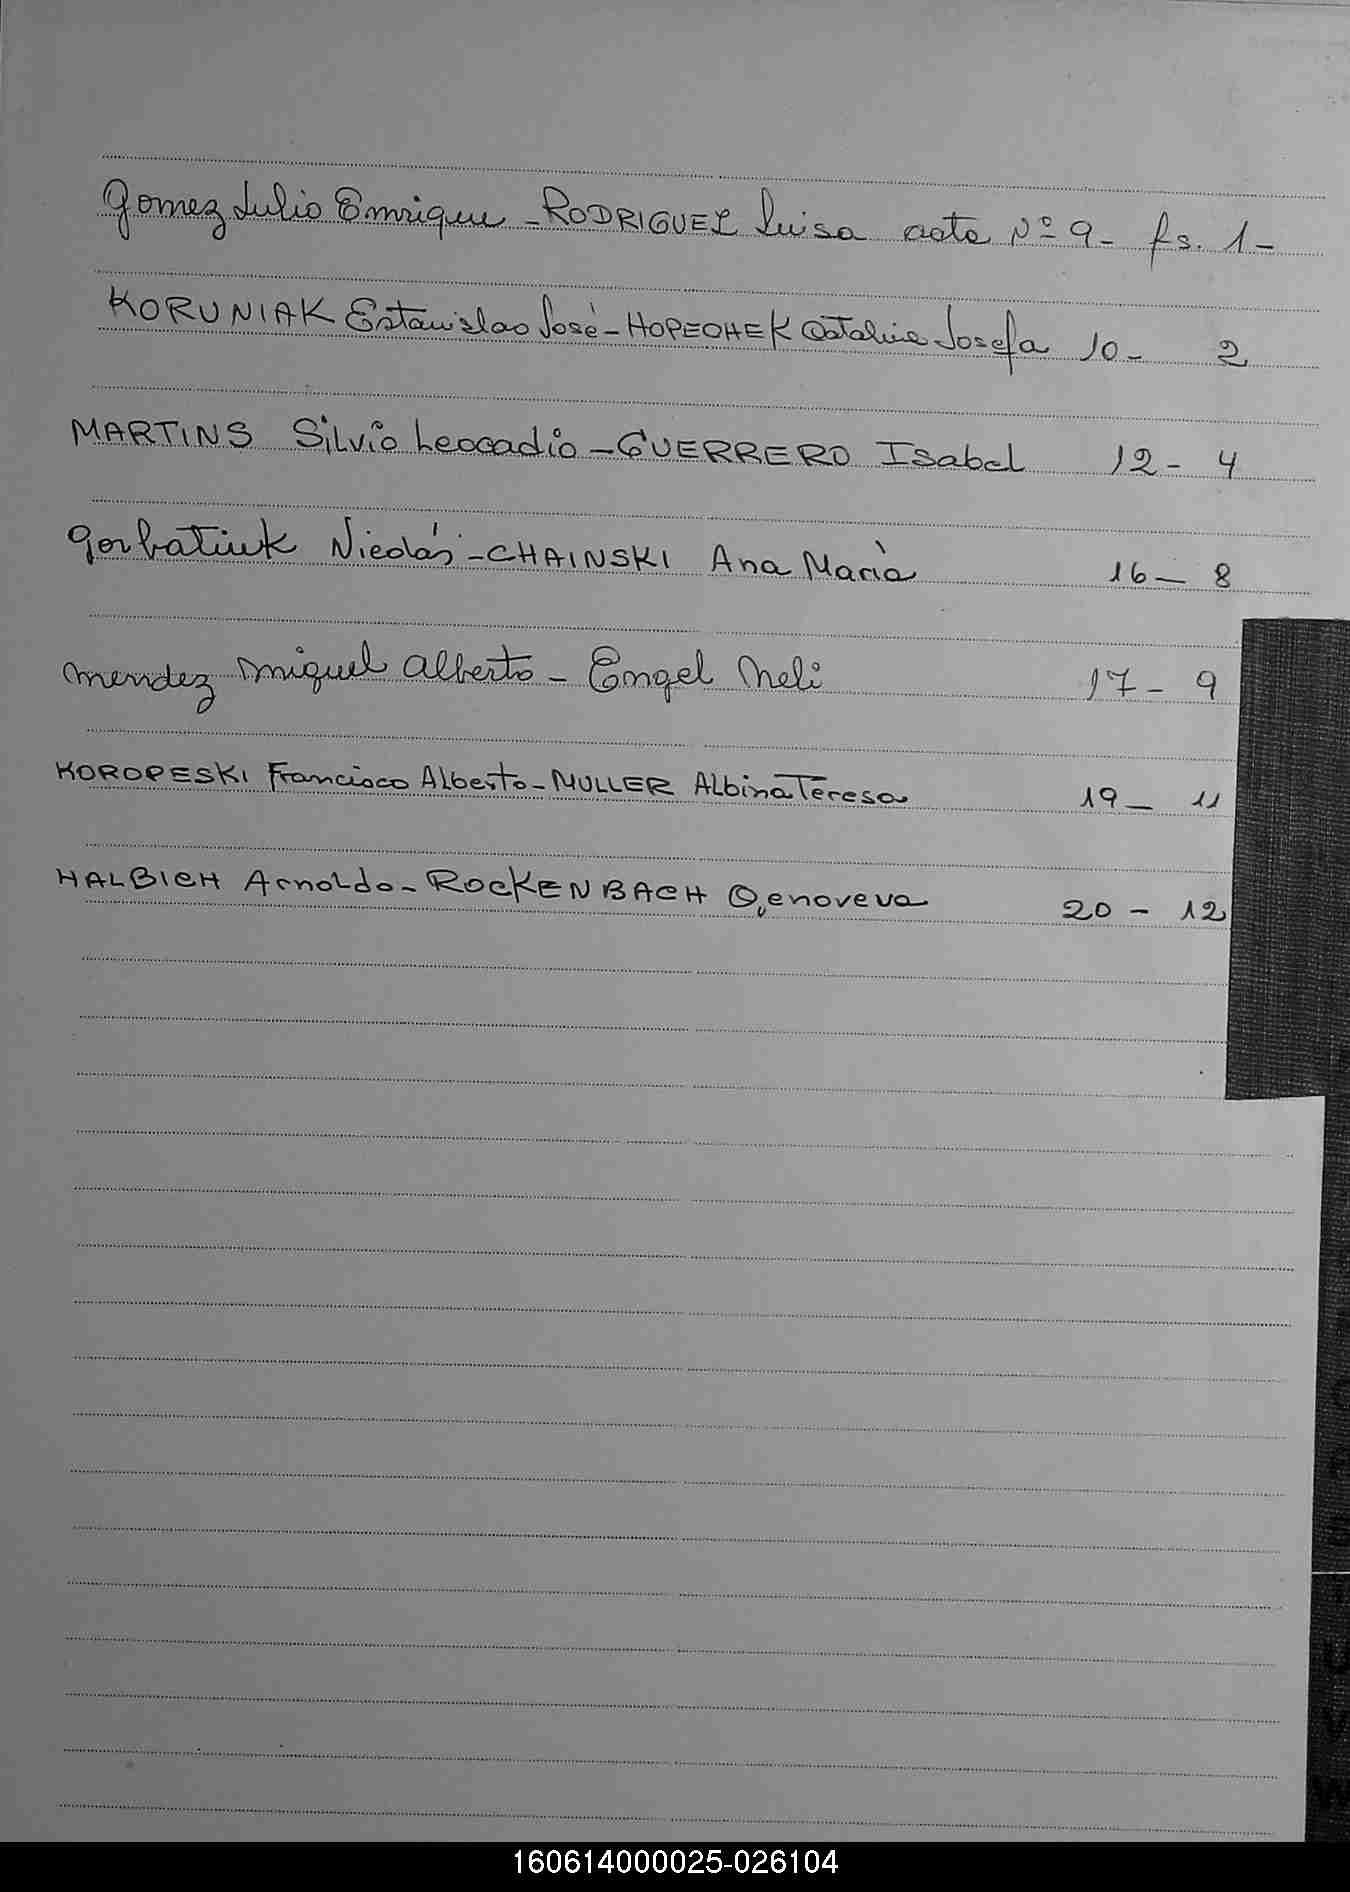 Gomez Julio Enrique - RODRIGUEZ Luisa acta Nº 9 - fs. 1 -
KORUNIAK Estanislao José - HOPECHEK Catalina Josefa 10 - 2
MARTINS Silvio Leocadio - GUERRERO Isabel 12 - 4
Gorbatiuk Nicolás - CHAINSKI Ana Maria 16 - 8
Mendez Miguel Alberto - Engel Neli 17 - 9
KOROPESKI Francisco Alberto - MULLER Albina Teresa 19 - 11
HALBICH Arnoldo - ROCKENBACH Genoveva 20 - 12
160614000025-026104